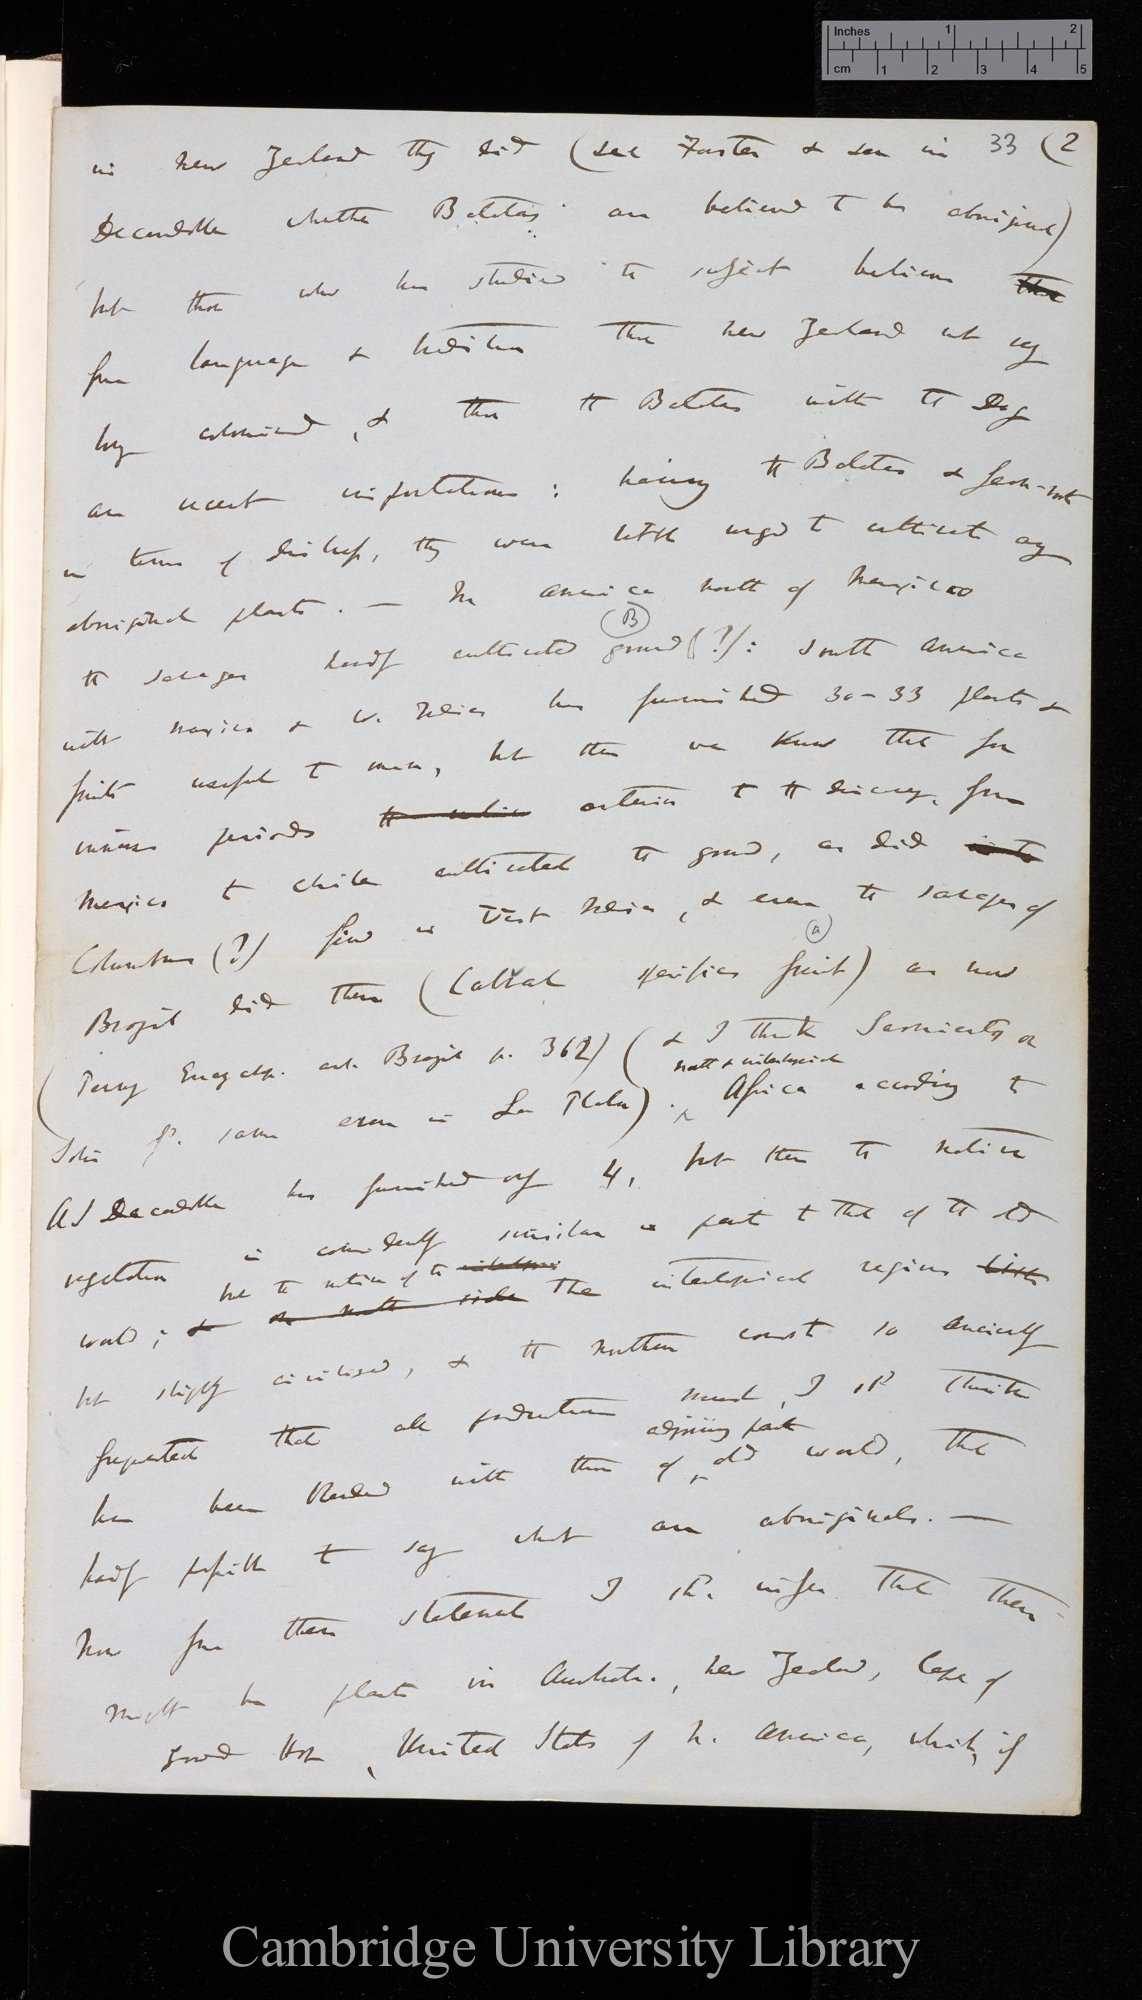 Inches 1 2
cm 1 2 3 4 5
33 (2
in New Zealand they did (see Forster & see in
Decandolle whether Batatas are believed to be aboriginal)
but those who have studied the subject believe that
from language & tradition that New Zealand not very
long colonised, & that the Batatas with the Dog
are recent importations: having the Batatas & fern-root
in times of they were little urged to cultivate any
aboriginal plants. — In America north of Mexico
the savages hardly cultivated ground (?): South America
B
with Mexico & W. Indies has furnished 30-33 plants &
fruits useful to man, but then we know that for
immense periods the natives anterior to the discovery, from
Mexico to Chile cultivated the ground, as did
Columbus (?) find in West Indies, & even the savages of
a
Brazil did then ( fruit) as now
(Penny Encyclop. art. Brazil p. 362) (& I think or
some even in La Plata). Africa according to
north & intertropical
A Decandolle has furnished only 4, but then the native
vegetation is considerably similar in part to that of the old
but the natives of the
world; & on north side The intertropical regions little
but slightly civilised, & the northern coast so anciently
frequented that all productions must, I shd think
adjoining part
have been blended with those of old world, that
hardly possible to say what are aboriginals. —
Now from these statements I shd. infer that there
might be plants in Australia, New Zealand, Cape of
Good Hope, United States of N. America, which, if
Cambridge University Library